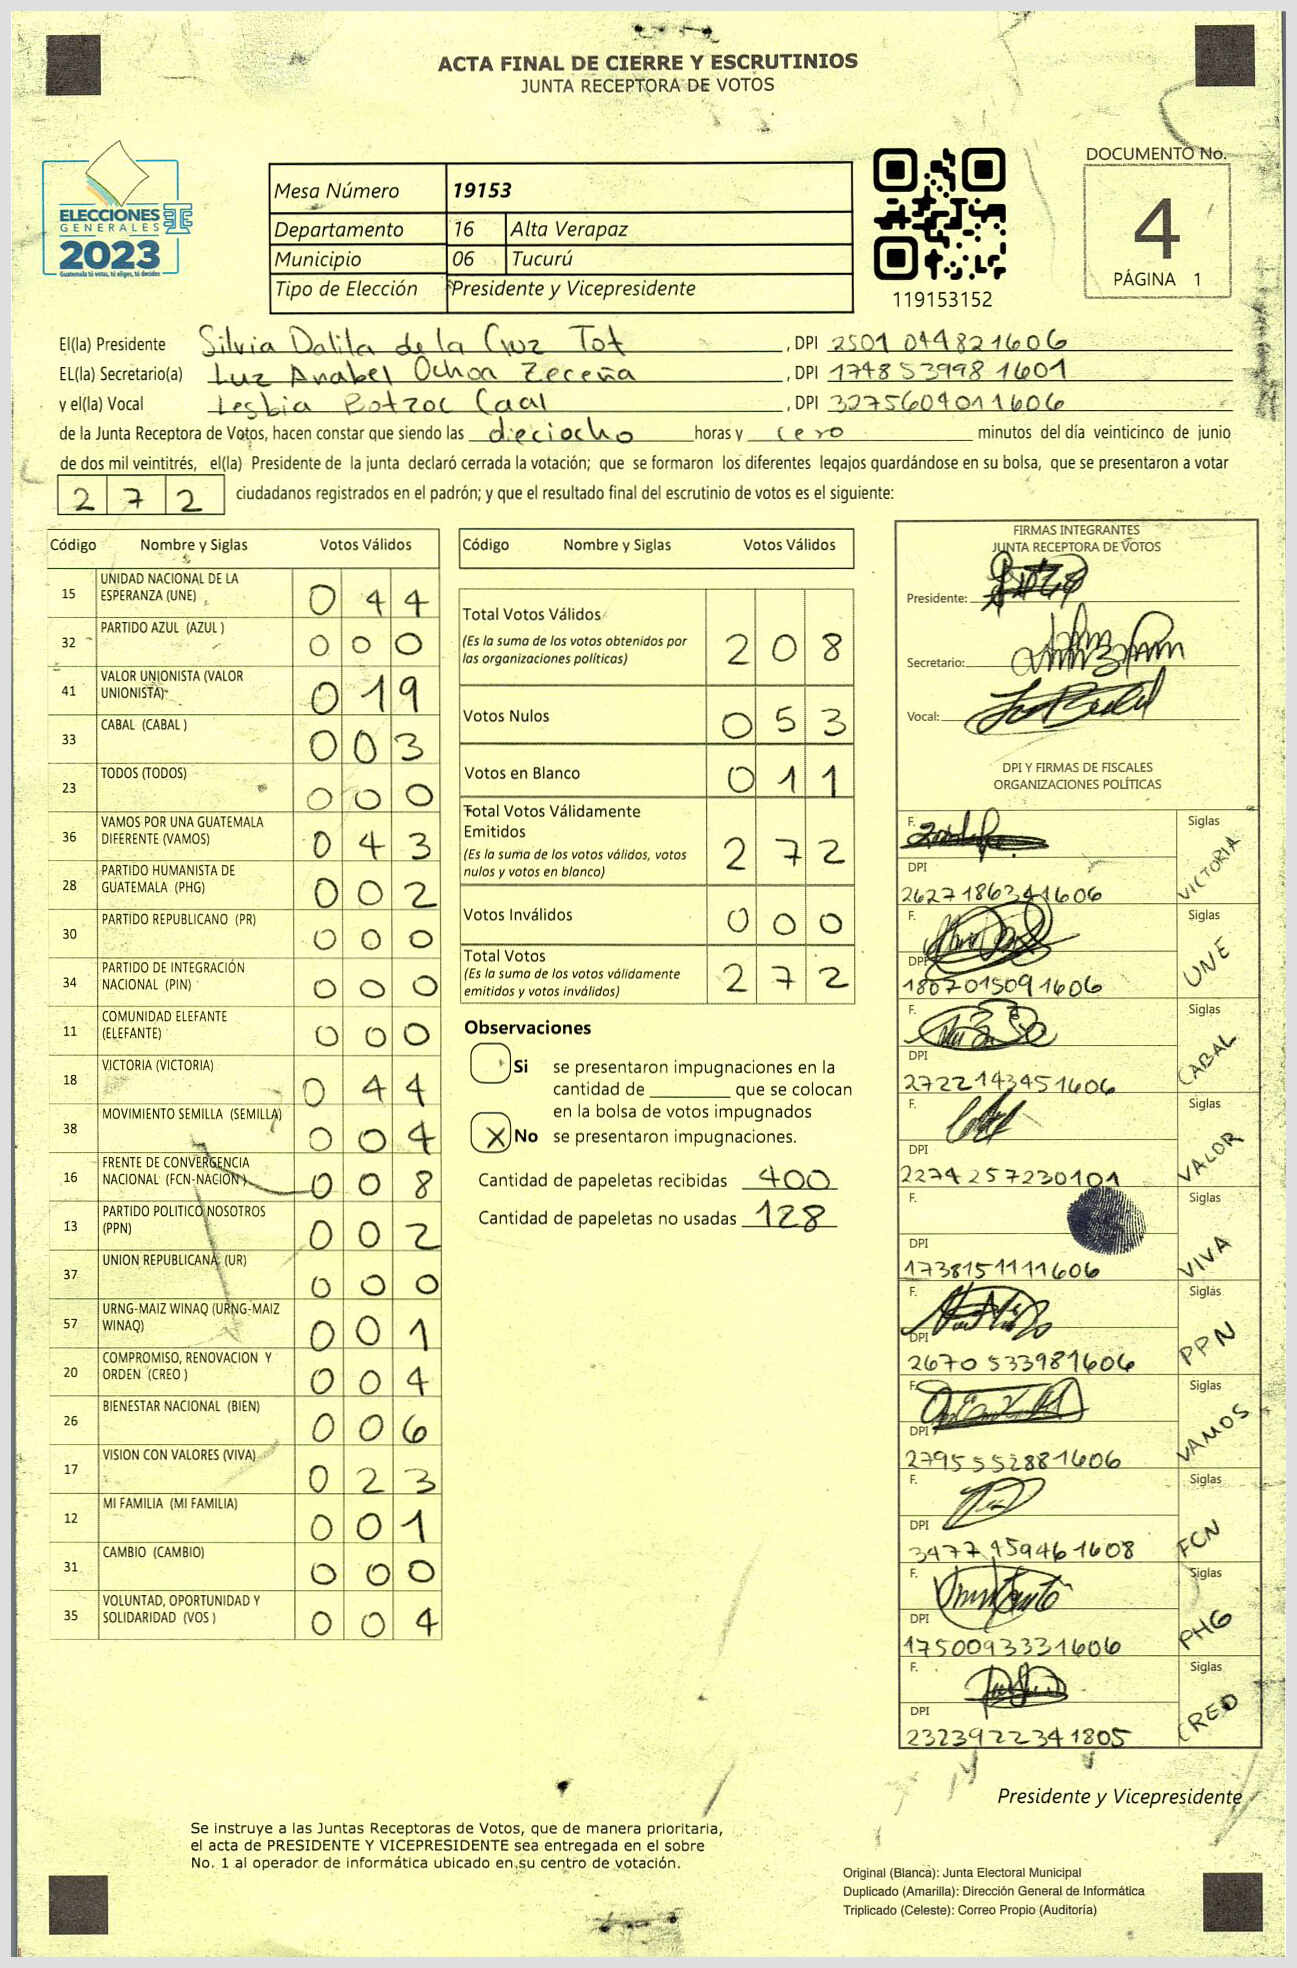 ACTA FINAL DE CIERRE Y ESCRUTINIOS
JUNTA RECEPTORA DE VOTOS
ELECCIONES
GENERALES
2023
Guatemala tú votas, tú eliges, tú decides
Mesa Número 19153
Departamento 16 Alta Verapaz
Municipio 06 Tucurú
Tipo de Elección Presidente y Vicepresidente
119153152
DOCUMENTO No.
4
PÁGINA 1
El(la) Presidente Silvia Dalila de la Cruz Tot, DPI 2501 044821606
EL(la) Secretario(a) Luz Anabel Ochoa Zeceña, DPI 1748539981601
y el(la) Vocal Lesbia Botzoc Caal, DPI 3275604011606
de la Junta Receptora de Votos, hacen constar que siendo las dieciocho horas y cero minutos del día veinticinco de junio
de dos mil veintitrés, el(la) Presidente de la junta declaró cerrada la votación; que se formaron los diferentes legajos guardándose en su bolsa, que se presentaron a votar
2 7 2 ciudadanos registrados en el padrón; y que el resultado final del escrutinio de votos es el siguiente:
Código Nombre y Siglas Votos Válidos
15 UNIDAD NACIONAL DE LA ESPERANZA (UNE) 0 4 4
32 PARTIDO AZUL (AZUL ) 0 0 0
41 VALOR UNIONISTA (VALOR UNIONISTA) 0 1 9
33 CABAL (CABAL ) 0 0 3
23 TODOS (TODOS) 0 0 0
36 VAMOS POR UNA GUATEMALA DIFERENTE (VAMOS) 0 4 3
28 PARTIDO HUMANISTA DE GUATEMALA (PHG) 0 0 2
30 PARTIDO REPUBLICANO (PR) 0 0 0
34 PARTIDO DE INTEGRACIÓN NACIONAL (PIN) 0 0 0
11 COMUNIDAD ELEFANTE (ELEFANTE) 0 0 0
18 VICTORIA (VICTORIA) 0 4 4
38 MOVIMIENTO SEMILLA (SEMILLA) 0 0 4
16 FRENTE DE CONVERGENCIA NACIONAL (FCN-NACION ) 0 0 8
13 PARTIDO POLITICO NOSOTROS (PPN) 0 0 2
37 UNION REPUBLICANA (UR) 0 0 0
57 URNG-MAIZ WINAQ (URNG-MAIZ WINAQ) 0 0 1
20 COMPROMISO, RENOVACION Y ORDEN (CREO ) 0 0 4
26 BIENESTAR NACIONAL (BIEN) 0 0 6
17 VISION CON VALORES (VIVA) 0 2 3
12 MI FAMILIA (MI FAMILIA) 0 0 1
31 CAMBIO (CAMBIO) 0 0 0
35 VOLUNTAD, OPORTUNIDAD Y SOLIDARIDAD (VOS ) 0 0 4
Código Nombre y Siglas Votos Válidos
Total Votos Válidos 2 0 8
(Es la suma de los votos obtenidos por
las organizaciones políticas)
Votos Nulos 0 5 3
Votos en Blanco 0 1 1
Total Votos Válidamente
Emitidos 2 7 2
(Es la suma de los votos válidos, votos
nulos y votos en blanco)
Votos Inválidos 0 0 0
Total Votos 2 7 2
(Es la suma de los votos válidamente
emitidos y votos inválidos)
Observaciones
Si se presentaron impugnaciones en la
cantidad de ________ que se colocan
en la bolsa de votos impugnados
X No se presentaron impugnaciones.
Cantidad de papeletas recibidas 400
Cantidad de papeletas no usadas 128
FIRMAS INTEGRANTES
JUNTA RECEPTORA DE VOTOS
Presidente:
Secretario:
Vocal:
DPI Y FIRMAS DE FISCALES
ORGANIZACIONES POLÍTICAS
F. Siglas VICTORIA
DPI
2627186341606
F. Siglas UNE
DPI
1807015091606
F. Siglas CABAL
DPI
2722143451606
F. Siglas VALOR
DPI
2274257230101
F. Siglas VIVA
DPI
1738151111606
F. Siglas PPN
DPI
2670533981606
F. Siglas VAMOS
DPI
2795552881606
F. Siglas FCN
DPI
3477459461608
F. Siglas PHG
DPI
1750093331606
F. Siglas CREO
DPI
2323922341805
Presidente y Vicepresidente
Se instruye a las Juntas Receptoras de Votos, que de manera prioritaria,
el acta de PRESIDENTE Y VICEPRESIDENTE sea entregada en el sobre
No. 1 al operador de informática ubicado en su centro de votación.
Original (Blanca): Junta Electoral Municipal
Duplicado (Amarilla): Dirección General de Informática
Triplicado (Celeste): Correo Propio (Auditoría)